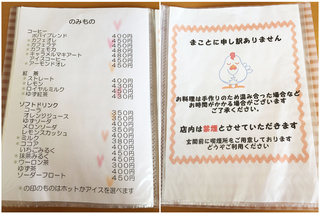 のみもの
コーヒー
ブレンド 400円
カフェオレ 450円
カフェラテ 450円
カフェモカ 450円
キャラメルマキアート 450円
アイスコーヒー 400円
アーモンドオレ 450円
紅茶
ストレート 400円
レモン 400円
ロイヤルミルク 450円
ゆず紅茶 450円
ソフトドリンク
コーラ 350円
オレンジジュース 300円
ゆずソーダ 400円
メロンソーダ 400円
レモンスカッシュ 400円
ミルク 300円
ココア 400円
いちごみるく 400円
抹茶みるく 400円
ウーロン茶 300円
ゆず茶 400円
ソーダーフロート 450円
の印のものはホットかアイスを選べます
まことに申し訳ありません
お料理は手作りのため混み合った場合など
お時間がかかる場合がございます
ご了承ください。
店内は禁煙とさせていただきます
玄関前に喫煙所をご用意しております
どうぞご利用ください